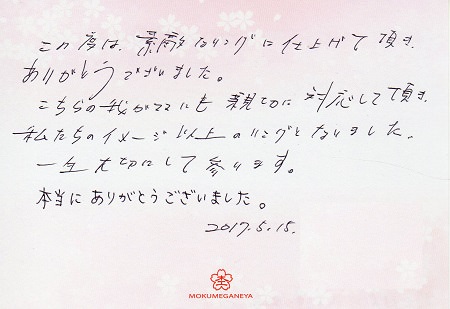 この度は、素敵なリングに仕上げて頂き、
ありがとうございました。
こちらの我がママにも親切に対応して頂き、
私たちのイメージ以上のリングとなりました。
一生大切にして参ります。
本当にありがとうございました。
2017.5.15.
MOKUMEGANEYA